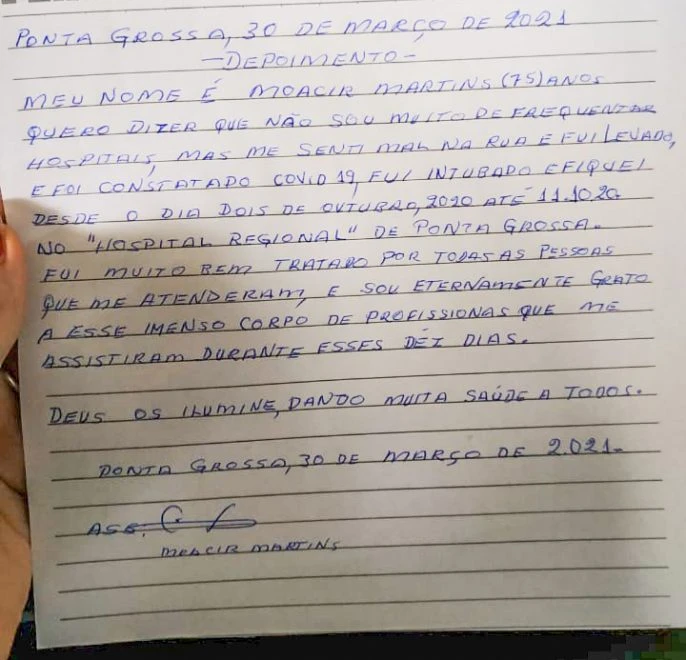 PONTA GROSSA, 30 DE MARÇO DE 2021
-DEPOIMENTO-
MEU NOME É MOACIR MARTINS (75) ANOS
QUERO DIZER QUE NÃO SOU MUITO DE FREQUENTAR
HOSPITAIS, MAS ME SENTI MAL NA RUA E FUI LEVADO,
E FOI CONSTATADO COVID 19, FUI INTUBADO E FIQUEI
DESDE O DIA DOIS DE OUTUBRO, 2020 ATÉ 11.10.20
NO "HOSPITAL REGIONAL" DE PONTA GROSSA.
FUI MUITO BEM TRATADO POR TODAS AS PESSOAS
QUE ME ATENDERAM, E SOU ETERNAMENTE GRATO
A ESSE IMENSO CORPO DE PROFISSIONAS QUE ME
ASSISTIRAM DURANTE ESSES DEZ DIAS.
DEUS OS ILUMINE, DANDO MUITA SAÚDE A TODOS.
PONTA GROSSA, 30 DE MARÇO DE 2.021.
ASS.
MOACIR MARTINS